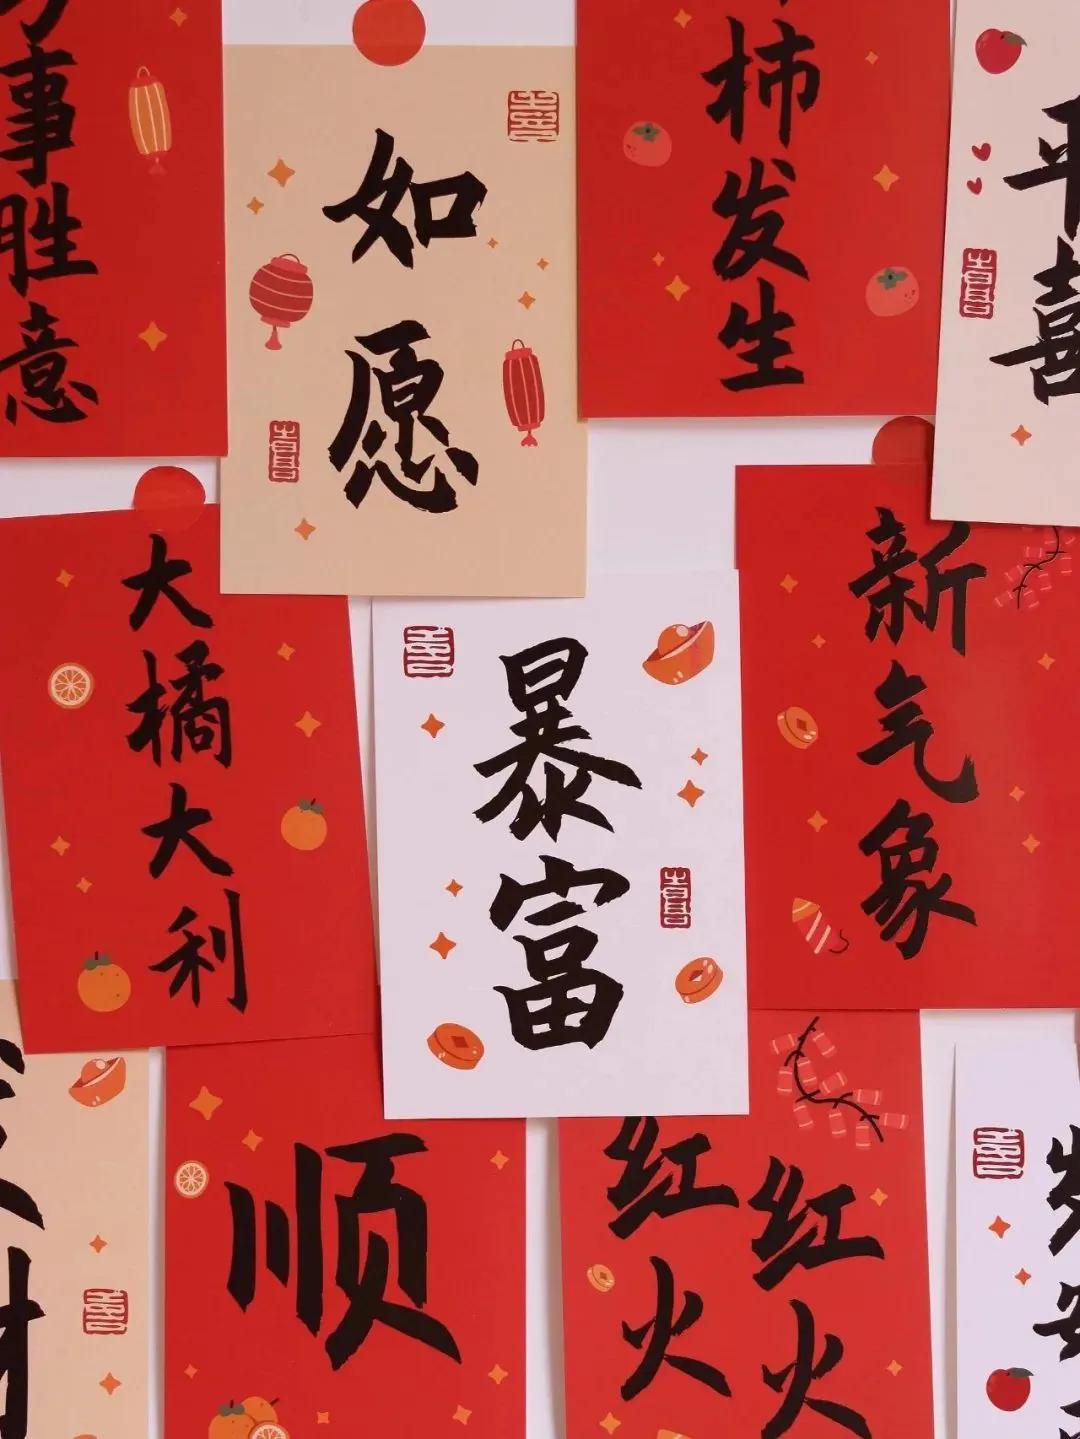 事胜意
如愿
柿发生
平
喜
大橘大利
暴富
新气象
财
顺
红红
火火
岁
安